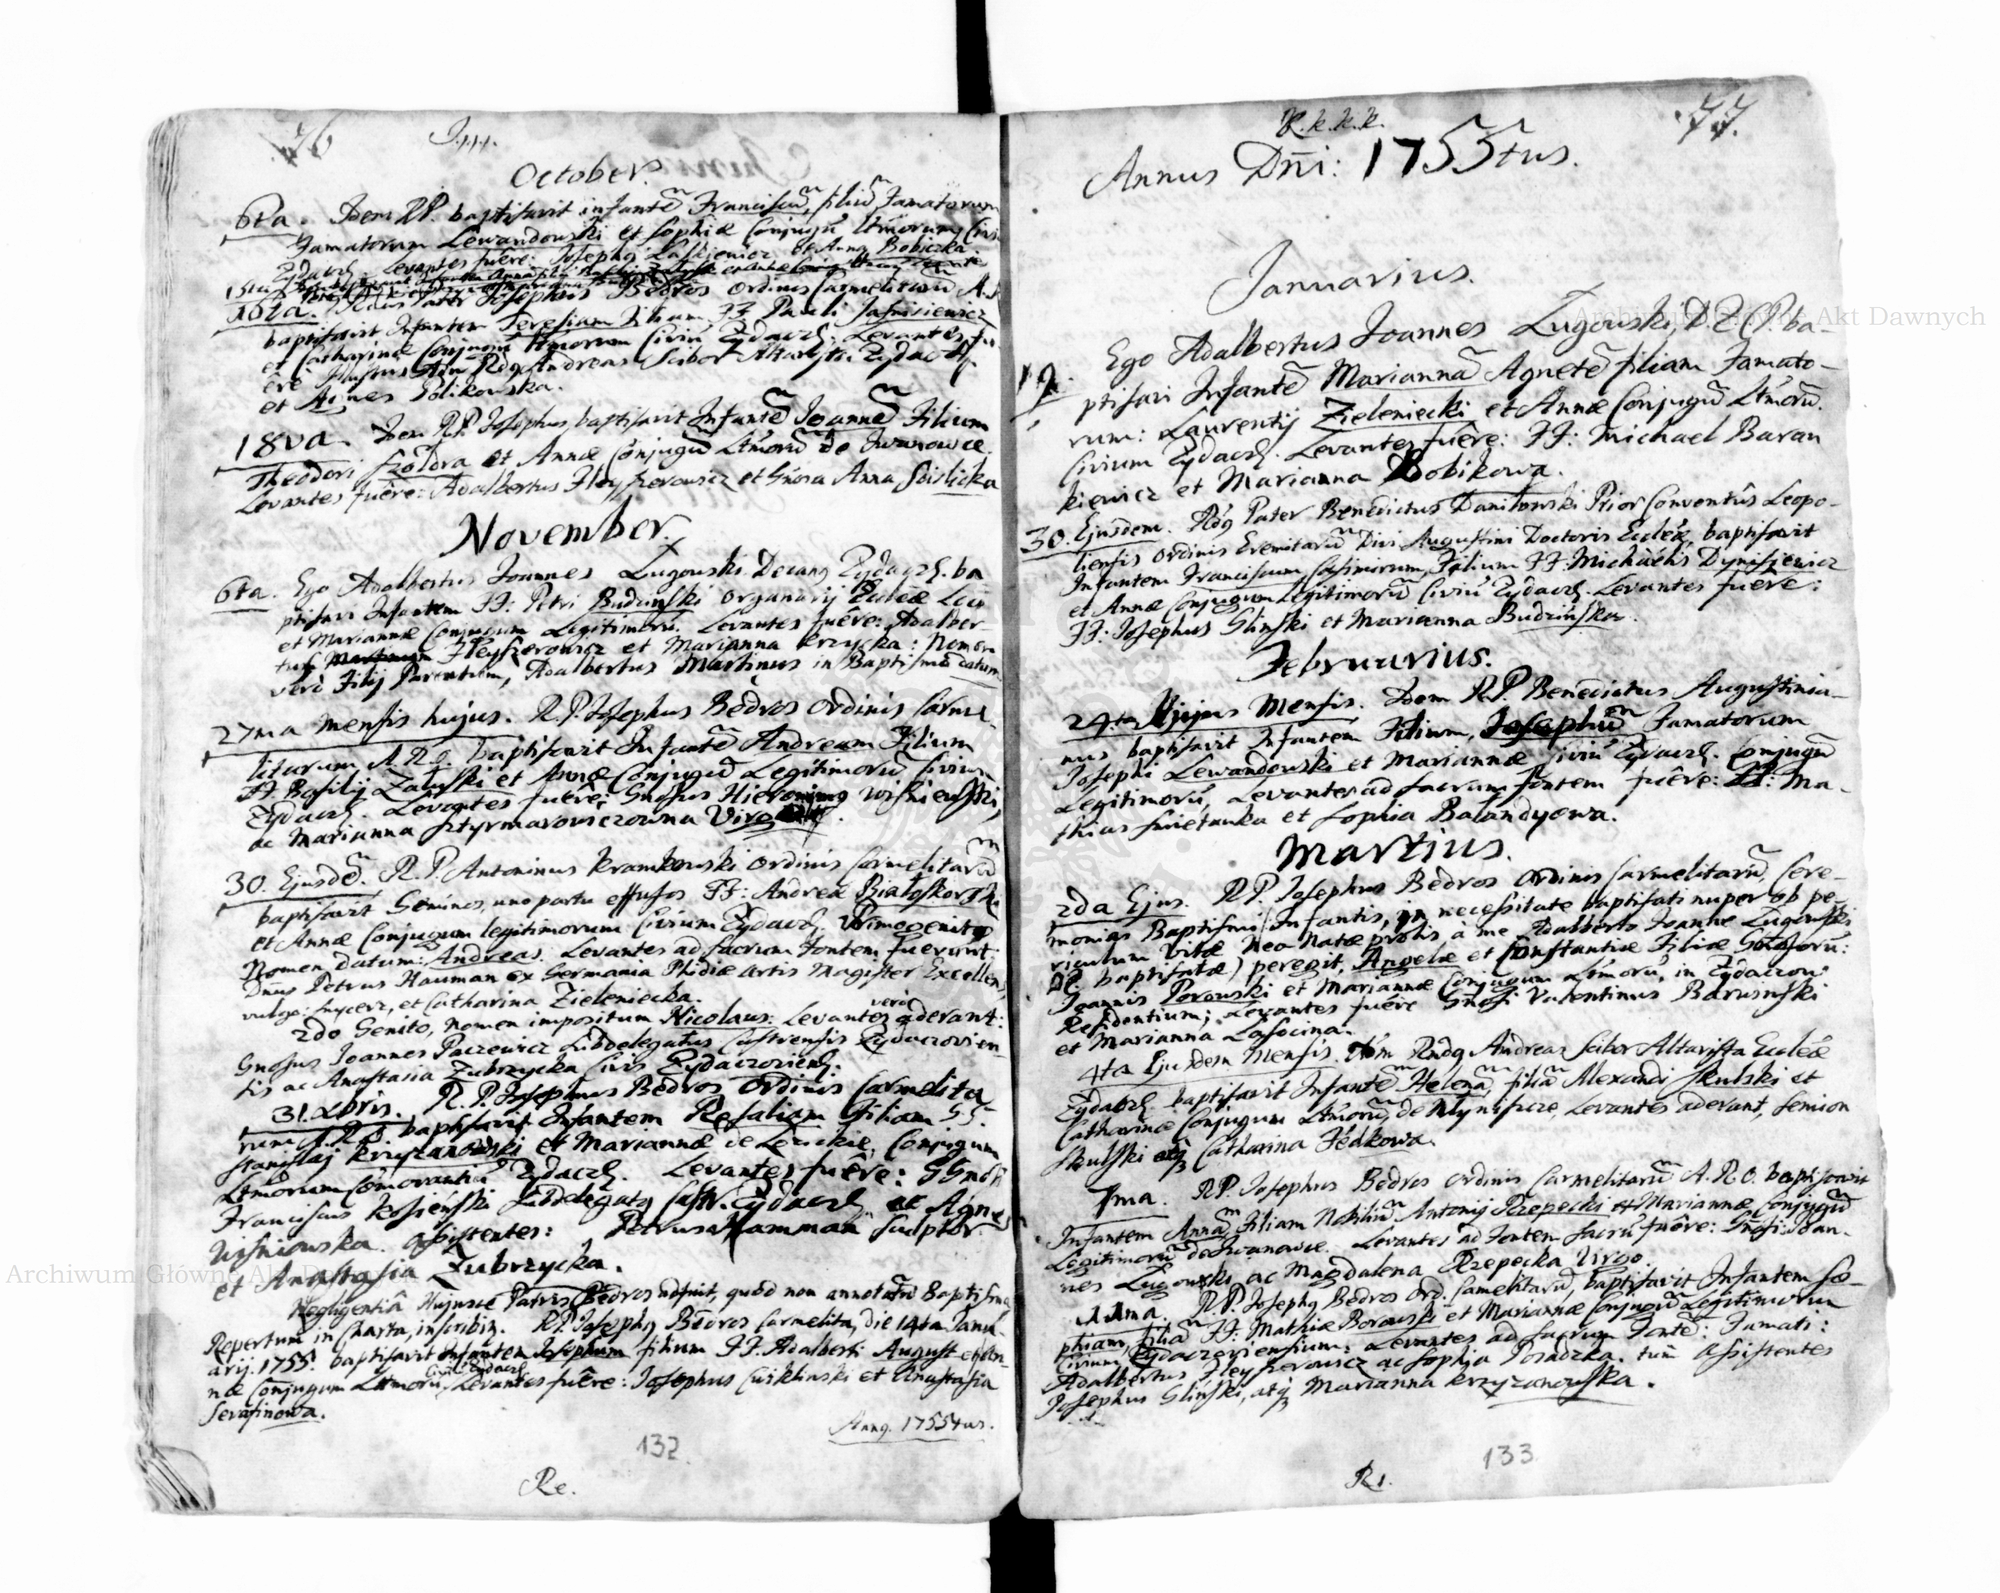 76
October.
6ta. Idem RP. baptisavit infantem Franciscum, filium Famatorum
Famatorum Lewandowski et Sophiæ Conjugum Ltmorum Civium
Zydacz. Levantes fuêre: Josephus Laskiewicz et Anna Bobiczka.
16ta. Pater Josephus Bedros Ordinis Carmelitarum A.
baptisavit Infantem Teresiam Filiam FF Pauli Jasnisiewicz
et Catharinæ Conjugum Ltmorum Civiũ Zydacz. Levantes fu-
êre Andreas Scibor Altarysta Zydacz.
et Agnes Polikowska.
18va. Idem R.P. Josephus baptisavit Infantẽ Joannẽ Filium
Theodori Szoldra et Annæ Conjugũ Ltmorũ de Iwanowce.
Levantes fuêre: Adalbertus Fleyszerowicz et Gnosa Anna Sbislicka
November.
6ta. Ego Adalbertus Joannes Lugowski Decang Zydacz. ba
ptisavi Infantem FF: Petri Budzinski Organarij Ecclæ Loci
et Mariannæ Conjugum Legitimorũ. Levantes fuêre: Adalber
tus Fleyszerowicz et Marianna Krzycka: Nomen
verò Filij Parentum, Adalbertus Martinus in Baptismo datum
27ma mensis hujus. R.P. Josephus Bedros Ordinis Carme-
litarum A.R.O. baptisavit Infantẽ Andream Filium
FF Basilij Zaleski et Annæ Conjugũ Legitimorũ Civium
Zydacz. Levantes fuêre; Gnosus Hieronimus Wisniewski,
ac Marianna Sztyrmarowiczowna Virgo.
30. Ejusdẽ. R.P. Antoninus Kramkowski Ordinis Carmelitarũ
baptisavit Geminos, uno partu effusos FF: Andreæ Bialoskorski
et Annæ Conjugum legitimorum Civium Zydacz. Primogenito
Nomen datum: Andreas. Levantes ad sacrum Fontem fuerunt:
Dnus Petrus Hauman ex Germania Phidiæ artis Magister Excellen,
vulgo: snycerz, et Catharina Zieleniecka.
2do Genito, nomen impositum Nicolaus: Levantes verò aderant:
Gnosus Joannes Paczewicz Subdelegatus Castrensis Zydaczovien-
sis ac Anastasia Zubrzycka Civis Zydaczoviens:
31. Xbris. R.P. Josephus Bedros Ordinis Carmelita
rum A.R.O. baptisavit Infantem Rosaliam Filiam GG.
Stanislaj Krzyzanowski et Mariannæ de Lezickie, Conjugum
Ltmorum Comorantiũ Zydacz. Levantes fuêre: GGnosi
Franciscus Kosienski Subdelegatg Castr. Zydacz. ac Agnes
Wisniowska. Assistentes: Petrus Hamman Sculptor
et Anastasia Zubrzycka.
Negligentiâ Hujusce Patris Bedros adfuit, quod non annotatũ Baptisma
Repertum in Charta, inscribitur. R.P. Josephg Bedros Carmelita, die 14ta Janu-
arij. 1755. baptisavit Infantem Josephum filium FF. Adalberti August et An-
næ Conjugum Ltmorũ Civiũ Zydacz. Levantes fuêre: Josephus Cwiklinski et Anastasia
Serafinowa.
Anng. 1755tus.
132
Re.
K.k.k.k.
77.
Annus Dñi: 1755tus.
Januarius.
19. Ego Adalbertus Joannes Lugowski, D.Z.P. ba-
ptisavi Infantẽ Mariannã Agnetẽ filiam Famato-
rum: Laurentij Zieleniecki et Annæ Conjugũ Ltmorũ.
Civium Zydacz. Levantes fuêre: FF: Michael Baran
kiewicz et Marianna Bobikowa.
30. Ejusdem. Rdg Pater Benedictus Danilowski Prior Conventûs Leopo-
liensis Ordinis Eremitarũ Divi Augustini Doctoris Ecclæ, baptisavit
Infantem Franciscum Casimirum, Filium FF: Michaelis Dynisiewicz
et Annæ Conjugum Legitimorũ Civiũ Zydacz. Levantes fuêre:
FF: Josephus Glinski et Marianna Budzinska.
Februarius.
24.ta Hujus Mensis. Idem R.P. Benedictus Augustinia-
nus baptisavit Infantem Filium, Josephũ Famatorum
Josephi Lewandowski et Mariannæ Civiũ Zydacz. Conjugũ
Legitimorũ, Levantes ad sacrum fontem fuêre: FF: Ma-
thias Smietanka et Sophia Balandyowa.
Martius.
2da Ejus. R.P. Josephus Bedros Ordinis Carmelitarũ, Cere-
monias Baptismi (Infantis, in necessitate baptisati nuper ob pe-
riculum vitæ Neo Natæ prolis à me Adalberto Joanne Lugowski
DZ. baptisatæ) peregit, Angelæ et Constantiæ Filiæ Gnosorũ:
Joannis Porowski et Mariannæ Conjugum Ltmorũ, in Zydaczow:
Residentium; Levantes fuêre Gnosi Valentinus Barwinski
et Marianna Lasocina.
4ta Ejusdem Mensis. Adm Rndg Andreas Scibor Altarysta Ecclæ
Zydacz. baptisavit Infantẽ Helenã, filiã Alexandi Skulski et
Catharinæ Conjugum Ltmorũ, de Mlyniszcze Levantes aderant, Semion
Skulski atq Catharina Fedkowa.
7ma. R.P. Josephus Bedros Ordinis Carmelitarũ A.R.O. baptisavit
Infantem Annã, Filiam Nobiliũ Antonij Rzepecki et Mariannæ Conjugũ
Legitimorũ de Iwanowce. Levantes ad Fontem sacrũ fuêre: Gnosi: Joan-
nes Lugowski ac Magdalena Rzepecka Virgo.
11ma. R.P. Josephg Bedros Ord. Carmelitarũ, baptisavit Infantem So-
phiam, filiã FF: Mathiæ Borowski et Mariannæ Conjugũ Legitimorum
Civium Zydaczoviensium: Levantes ad sacrum Fontẽ: Famati:
Adalbertus Fleyszerowicz ac Sophia Posadzka. tum Assistentes
Josephus Glinski, atq Marianna Krzyzanowska.
133
R1.
Archiwum Główne Akt Dawnych
Archiwum Główne Akt Dawnych